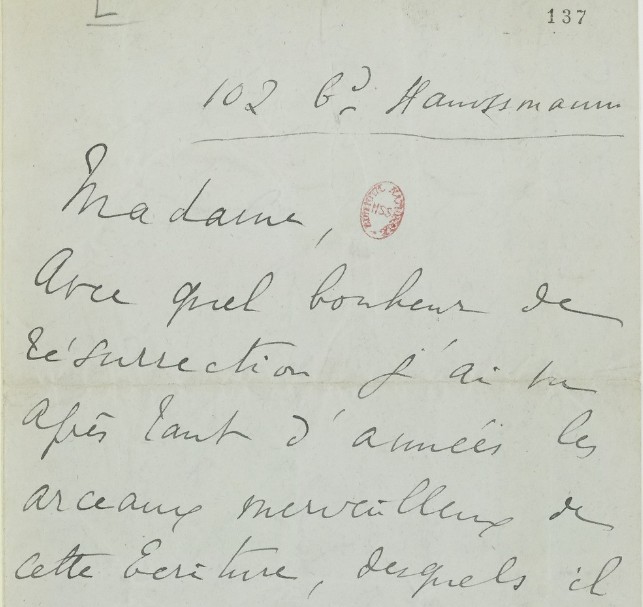 137
102 Bd Haussmann
Madame,
Avec quel bonheur de
résurrection j'ai vu
après tant d'années les
arceaux merveilleux de
cette Écriture, desquels il